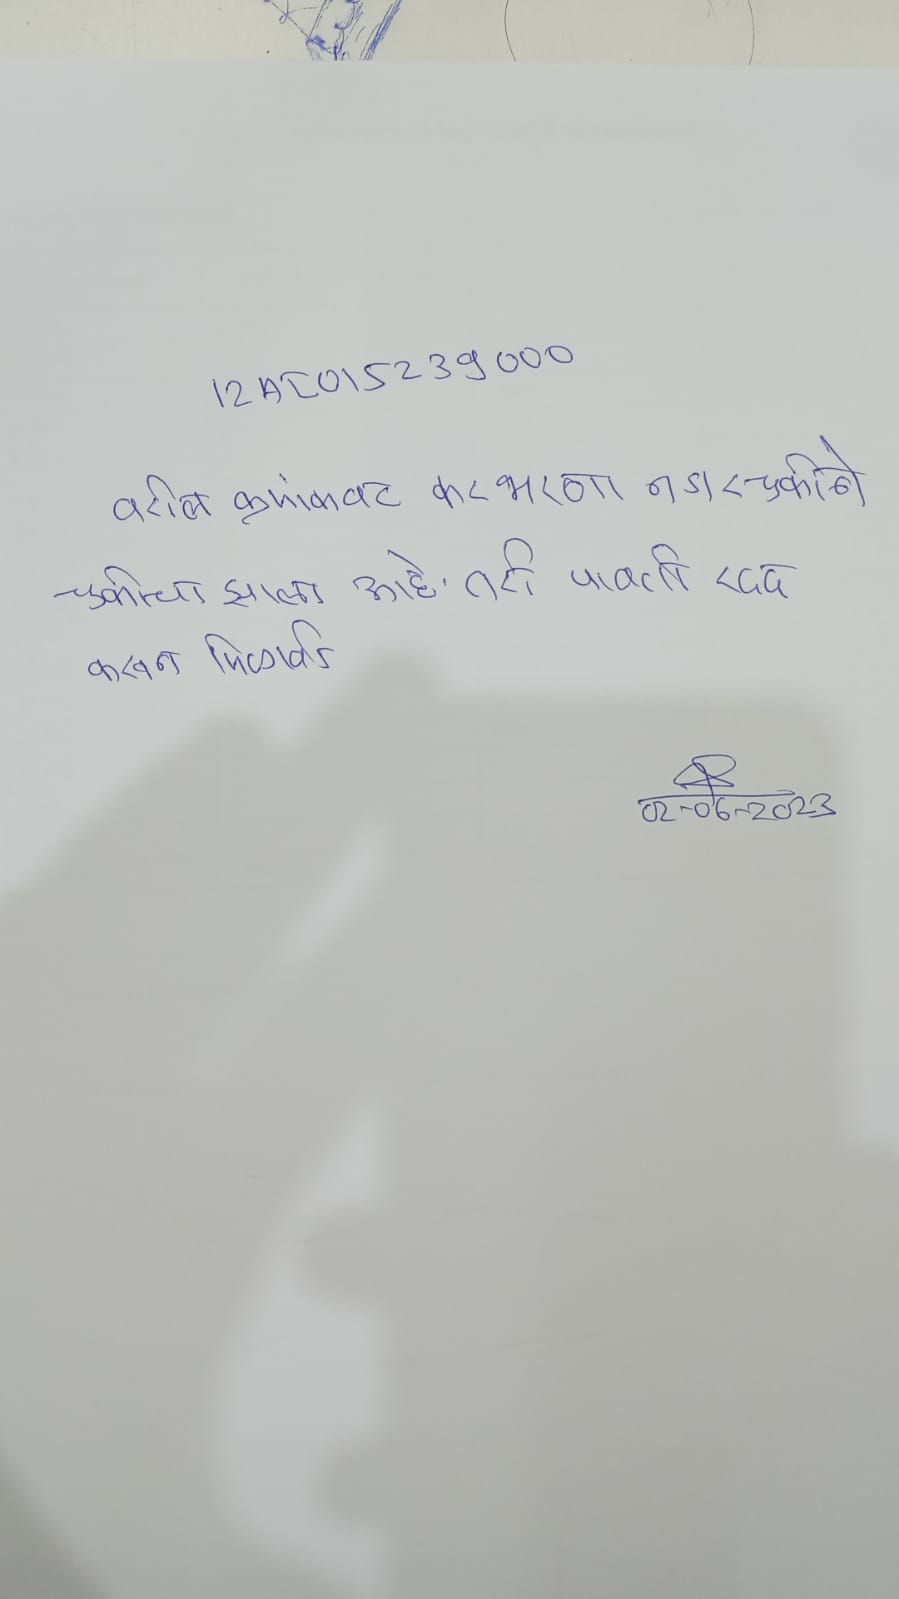 12AI015239000
वरील क्रमांकावर कर भरणा नजरचुकीने
चुकीचा झाला आहे. तरी पावती रद्द
करून मिळावी
02-06-2023